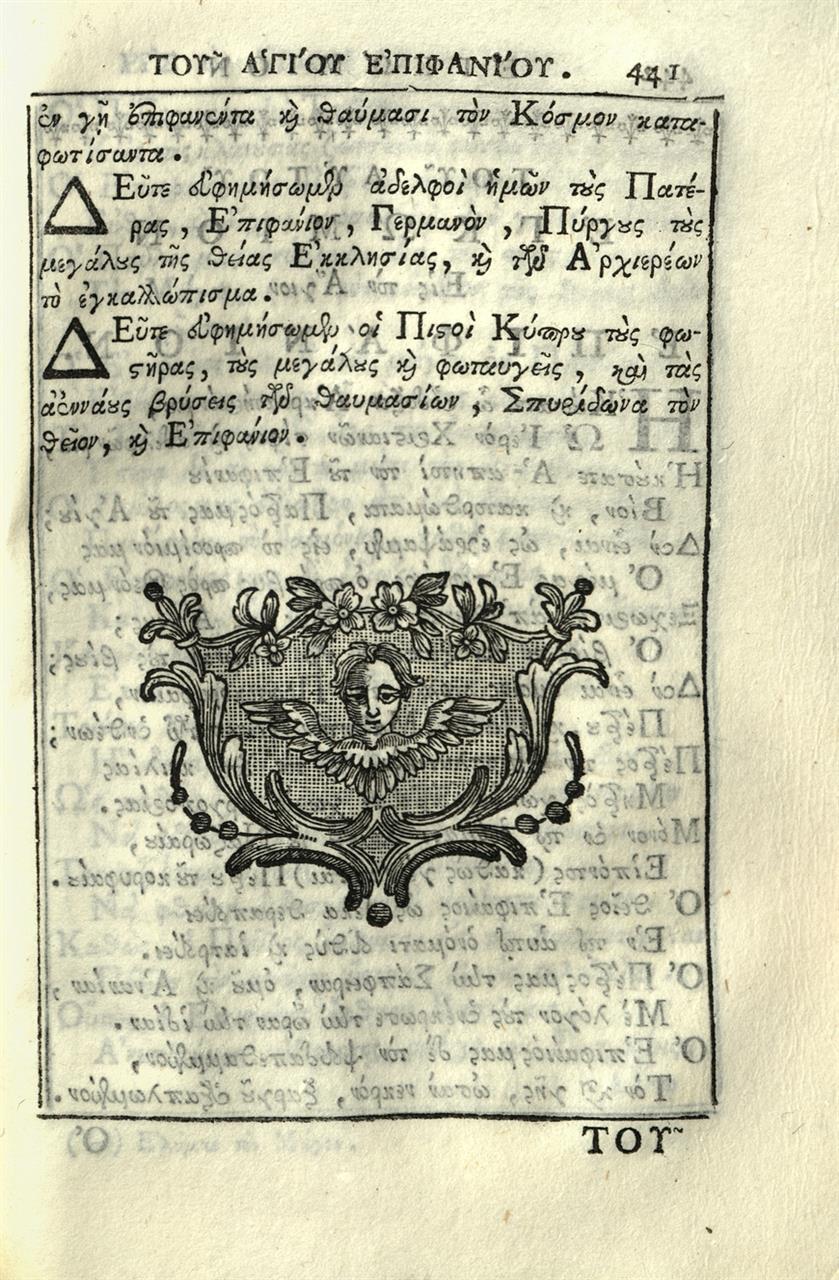 ΤΟΥ͂ ἉΓΊΟΥ ἘΠΙΦΑΝΊΟΥ. 441
ἐν γῇ ἐπιφανέντα κỳ θαύμασι τὸν Κόσμον κατα-
φωτίσαντα.
ΔΕῦτε εὐφημήσωμεν ἀδελφοὶ ἡμῶν τοὺς Πατέ-
ρας, Ἐπιφάνιον, Γερμανὸν, Πύργους τοὺς
μεγάλους τῆς θείας Ἐκκλησίας, κỳ τῶν Ἀρχιερέων
τὸ ἐγκαλλώπισμα.
ΔΕῦτε εὐφημήσωμεν οἱ Πιστοὶ Κύπρου τοὺς φω-
στῆρας, τοὺς μεγάλους κỳ φωταυγεῖς, καὶ τὰς
ἀεννάους βρύσεις τῶν θαυμασίων, Σπυρίδωνα τὸν
θεῖον, κỳ Ἐπιφάνιον.
ΤΟΥ͂